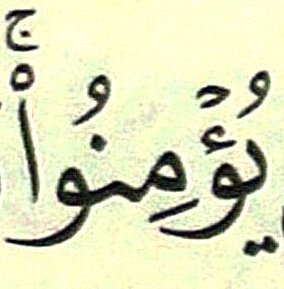 يُؤْمِنُوا۟ۚ